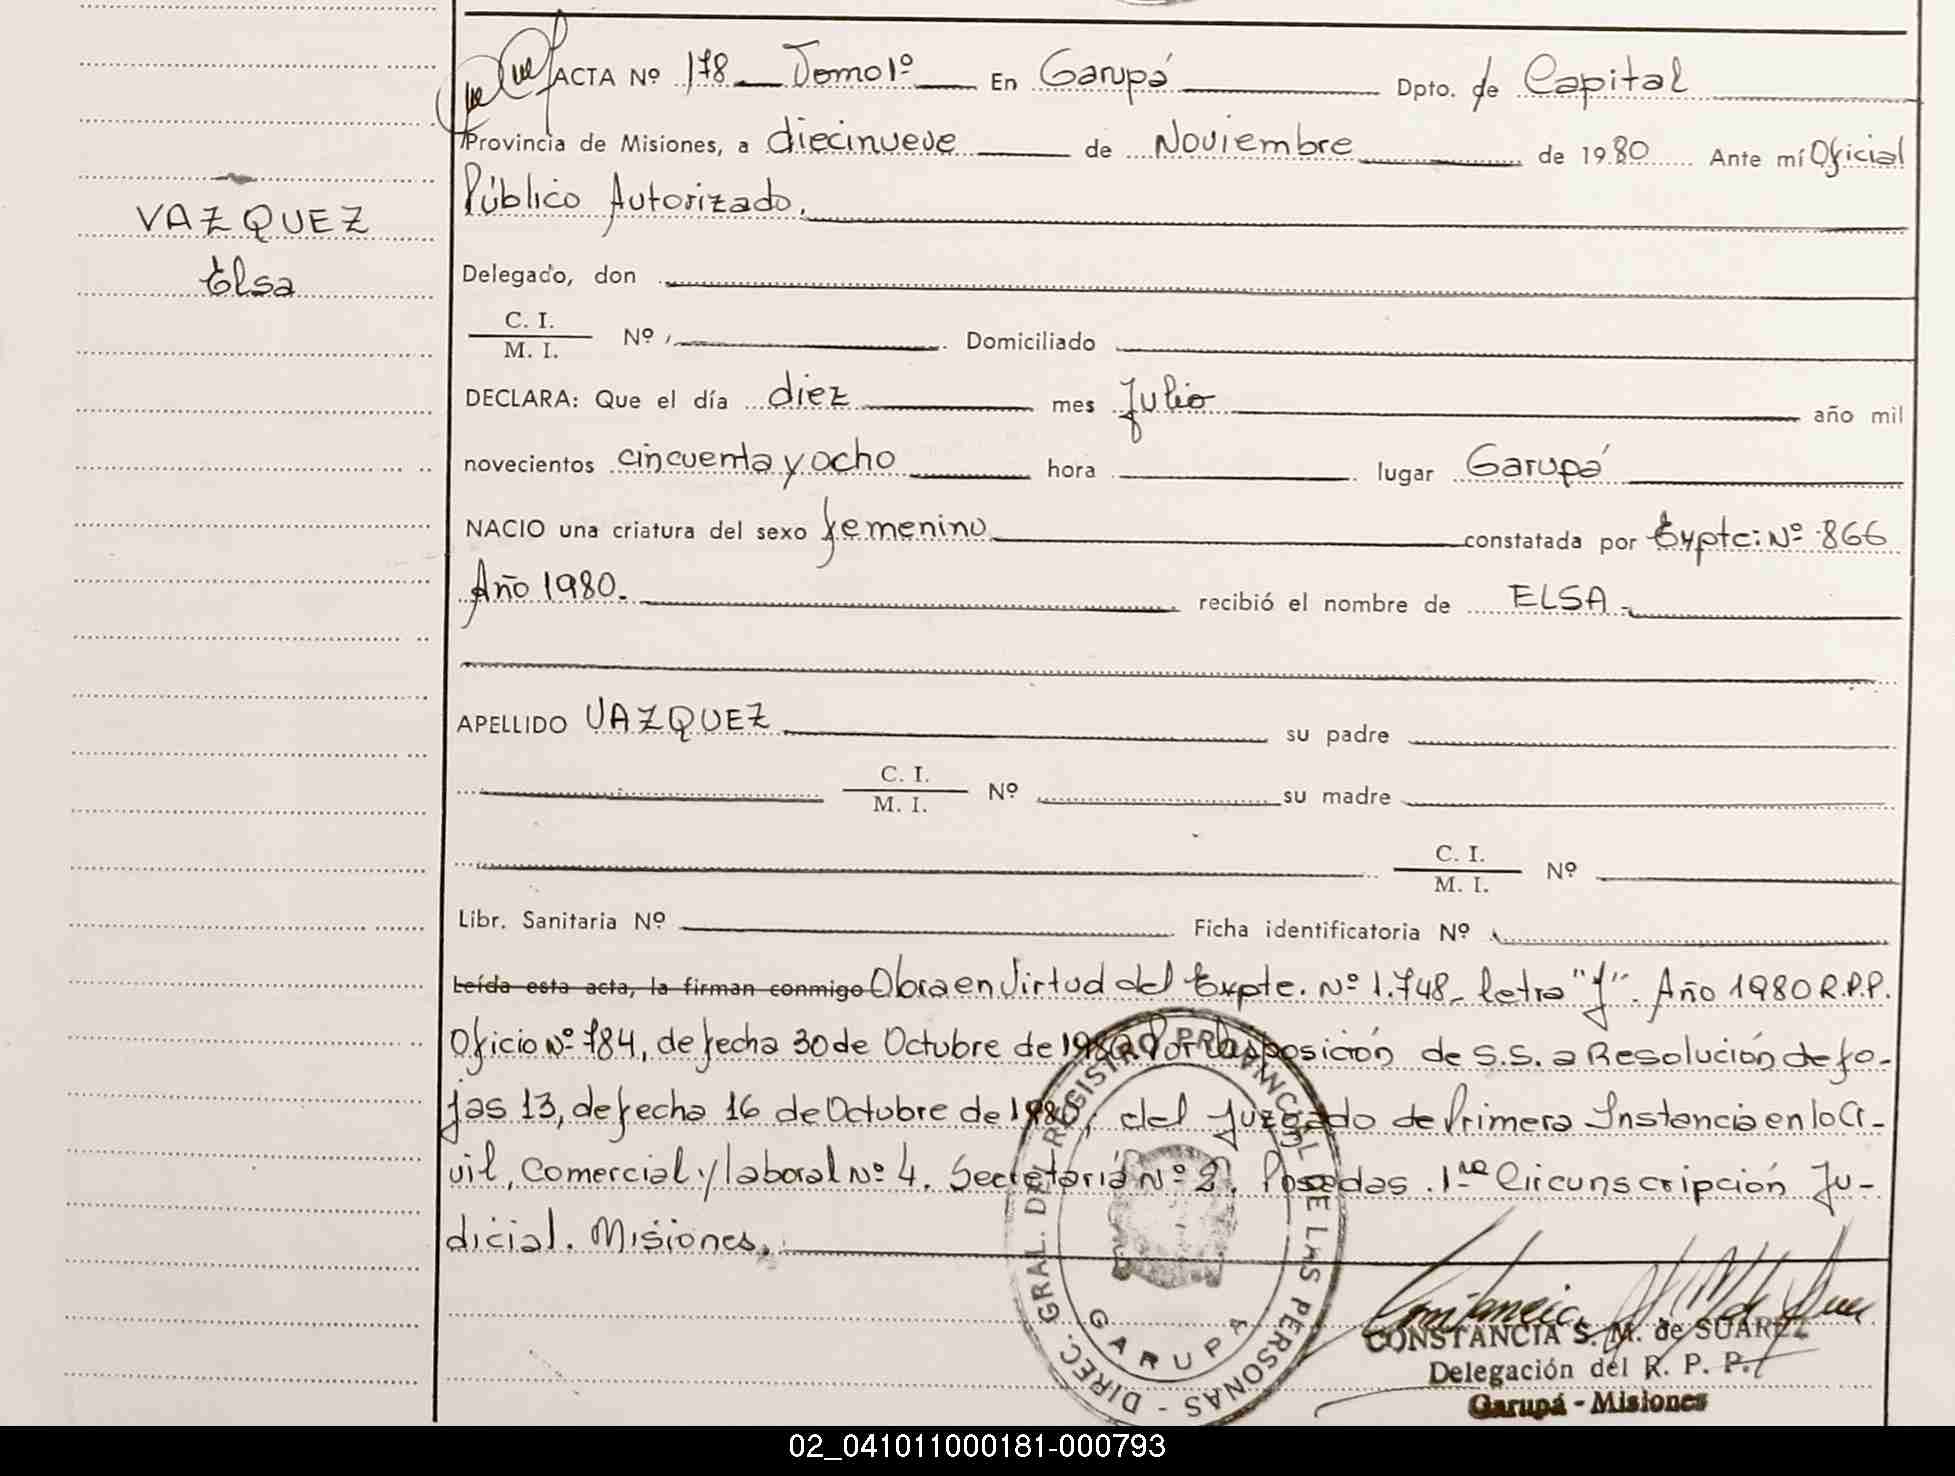 ACTA Nº 178 Tomo 1º En Garupá Dpto. de Capital
Provincia de Misiones, a diecinueve de Noviembre de 1980 Ante mí Oficial
Público Autorizado.
VAZQUEZ
Elsa
Delegado, don
C. I.
M. I. Nº Domiciliado
DECLARA: Que el día diez mes Julio año mil
novecientos cincuenta y ocho hora lugar Garupá
NACIO una criatura del sexo femenino constatada por Expte: Nº 866
Año 1980. recibió el nombre de ELSA.
APELLIDO VAZQUEZ su padre
C. I.
M. I. Nº su madre
C. I.
M. I. Nº
Libr. Sanitaria Nº Ficha identificatoria Nº
Leída esta acta, la firman conmigo Obra en Virtud del Expte. Nº 1.748. letra "J". Año 1980 R.P.P.
Oficio Nº 784, de fecha 30 de Octubre de 1980. Por disposición de S.S. a Resolución de fo-
jas 13, de fecha 16 de Octubre de 1980, del Juzgado de Primera Instancia en lo Ci-
vil, Comercial y laboral Nº 4. Secretaria Nº 2. Posadas. 1ra Circunscripción Ju-
dicial. Misiones.
DIREC. GRAL. DEL REGISTRO PROVINCIAL DE LAS PERSONAS -
GARUPA
CONSTANCIA S. M. de SUAREZ
Delegación del R. P. P.
Garupá - Misiones
02_041011000181-000793